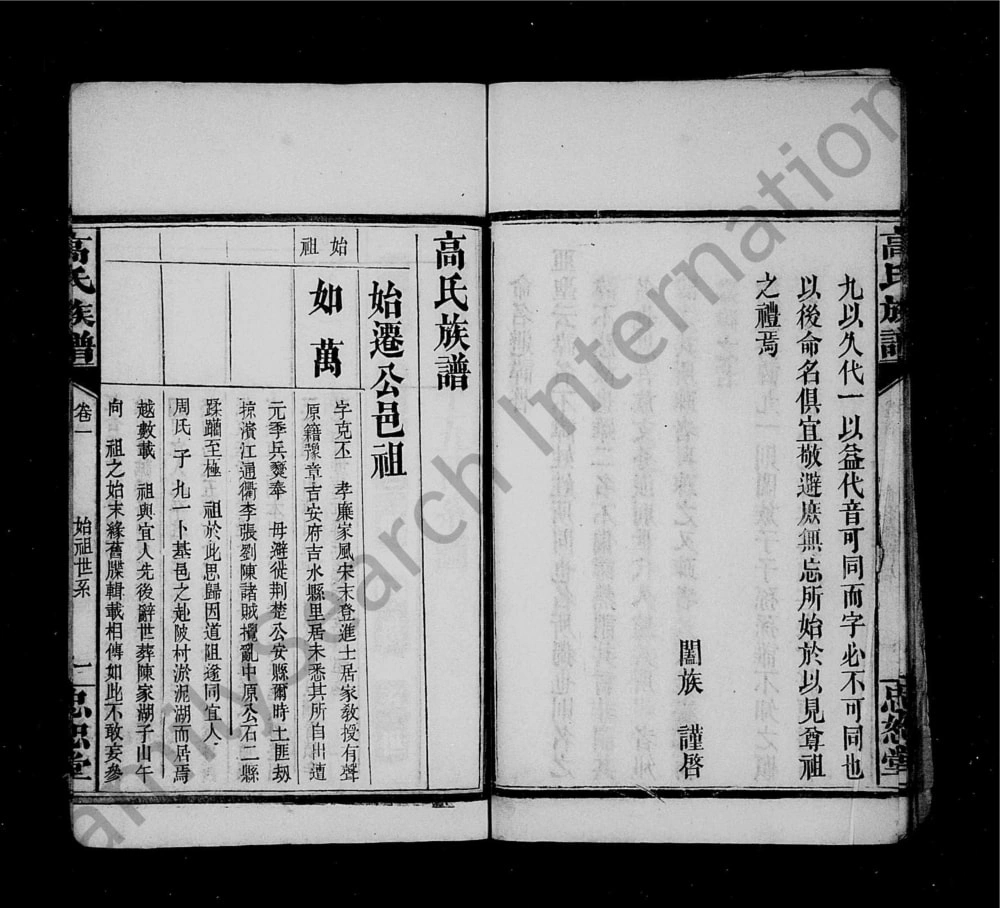 高氏族譜
忠恕堂
九以久代一以益代音可同而字必不可同也
以後命名俱宜敬避庶無忘所始於以見尊祖
之禮焉
闔族 謹啓
高氏族譜
始遷公邑祖
始祖
如萬
字克丕 孝廉家風宋末登進士居家敎授有聲
原籍豫章吉安府吉水縣里居未悉其所自出遭
元季兵燹奉 母避徙荆楚公安縣爾時土匪刼
掠濱江通衢李張劉陳諸賊擾亂中原公石二縣
蹂躪至極 祖於此思歸因道阻遂同宜人
周氏 子 九一卜基邑之赴陂村淤泥湖而居焉
越數載 祖與宜人先後辭世葬陳家湖子山午
向 祖之始末緣舊牒輯載相傳如此不敢妄參
高氏族譜
卷一
始祖世系
一
忠恕堂
FamilySearch International